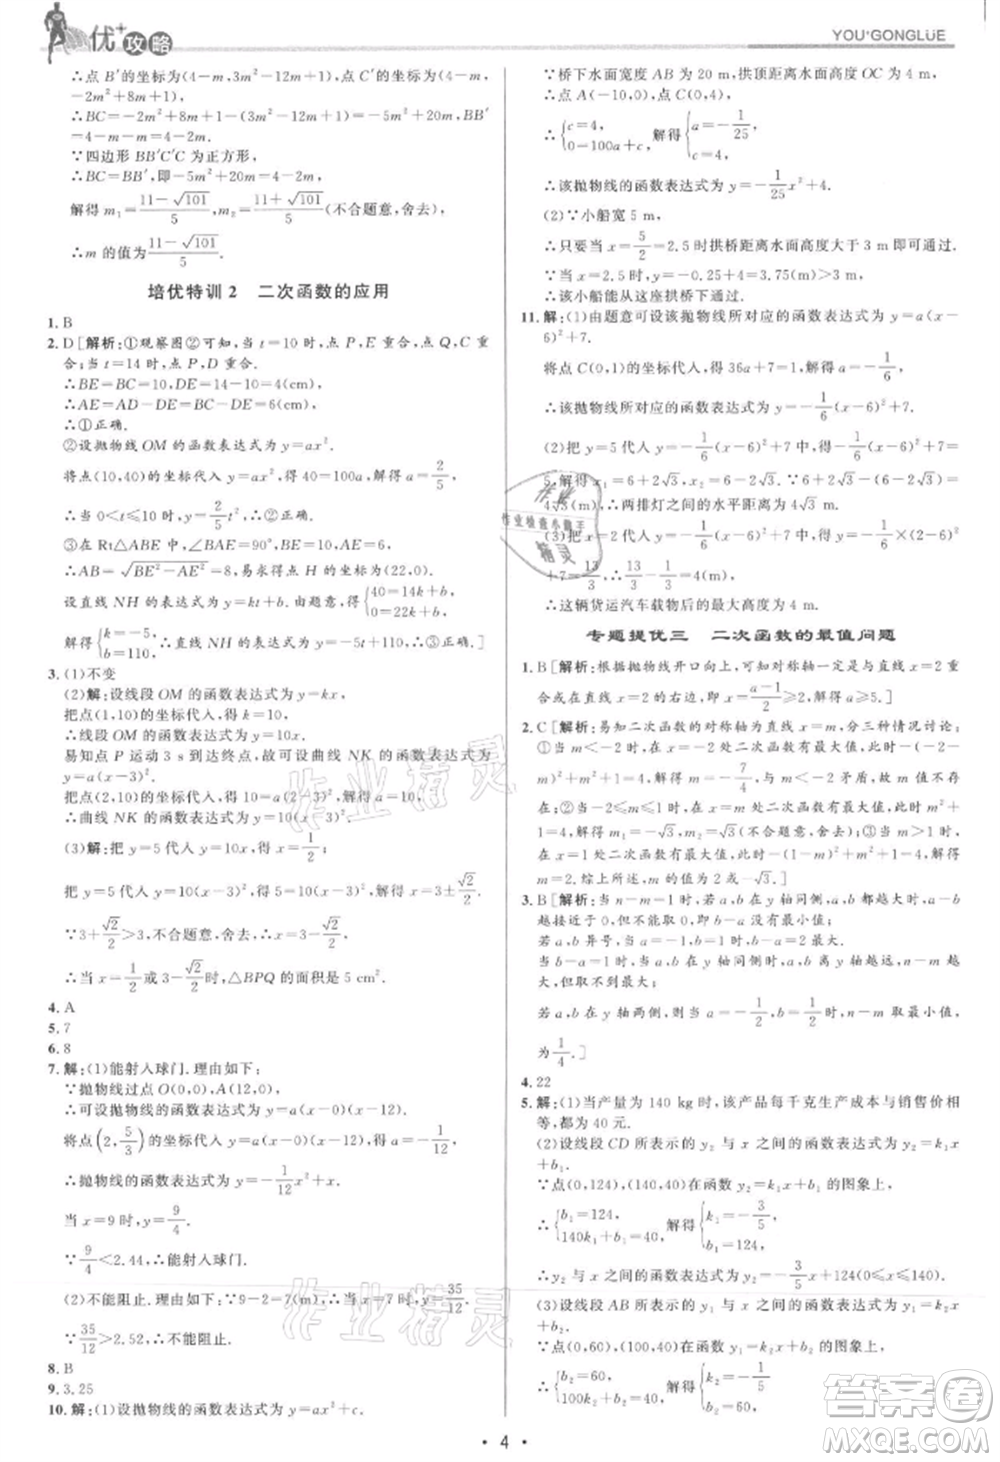 优+攻略
YOU+GONGLÜE
∴点 B′的坐标为(4-m,3m²-12m),点 C′的坐标为(4-m,
-2m²+8m).
∴BC=-2m²+8m+1-(3m²-12m+1)=-5m²+20m,BB′=
4-m-m=4-2m.
∵四边形 BB′C′C 为正方形,
∴BC=BB′,即-5m²+20m=4-2m.
解得 m₁=(11-√101)/5,m₂=(11+√101)/5(不合题意,舍去),
∴m 的值为(11-√101)/5.
培优特训 2 二次函数的应用
1. B
2. D[解析:①观察图②可知,当 t=10 时,点 P,E 重合;当 t=14 时,点 P,D 重合.
∴BE=BC=10,DE=14-10=4(cm)
∴AE=AD-DE=BC-DE=6(cm)
∴①正确.
②设抛物线 OM 的函数表达式为 y=at².
将点(10,40)的坐标代入 y=at²,得 40=100a,解得 a=2/5,
∴当 0<t≤10 时,y=2/5 t²,∴②正确.
③在 Rt△ABE 中,∠BAE=90°,BE=10,AE=6,
∴AB=√(BE²-AE²)=8,易求得点 H 的坐标为(22,0).
设直线 NH 的表达式为 y=kt+b.由题意,得{40=14k+b, 0=22k+b.
解得{k=-5, b=110.∴直线 NH 的表达式为 y=-5t+110,∴③正确.]
3. (1)不变
(2)解:设线段 OM 的函数表达式为 y=kx.
把点(1,10)的坐标代入,得 k=10.
∴线段 OM 的函数表达式为 y=10x.
易知点 P 运动 3 s 到达终点,故可设曲线 NK 的函数表达式为
y=a(x-3)².
把点(2,10)的坐标代入,得 a=10.
∴曲线 NK 的函数表达式为 y=10(x-3)².
(3)解:把 y=5 代入 y=10x,得 x=1/2;
把 y=5 代入 y=10(x-3)²,得 x=3±√2/2.
∵3+√2/2>3,不合题意,舍去,∴x=3-√2/2.
∴当 x=1/2或 3-√2/2时,△BPQ 的面积是 5 cm².
4. A
5. 7
6. 8
7. 解:(1)能射入球门.理由如下:
∵抛物线过点 O(0,0),A(12,0),
∴可设抛物线的函数表达式为 y=a(x-0)(x-12).
将点(2,5/3)代入,得 5/3=a(2-0)(2-12),解得 a=-1/12,
∴抛物线的函数表达式为 y=-1/12x²+x.
当 x=9 时,y=9/4.
∵9/4<2.44,∴能射入球门.
(2)不能阻止.理由如下:∵9-2=7(m),∴当 x=7 时,y=35/12.
∵35/12>2.52,∴不能阻止.
8. B
9. 3.25
10. 解:(1)设抛物线的函数表达式为 y=ax²+c.
∵桥下水面宽度 AB 为 20 m,拱顶距离水面高度 OC 为 4 m,
∴点 A(-10,0),点 C(0,4),
∴{c=4, 0=100a+c,解得{a=-1/25, c=4,
∴该抛物线的函数表达式为 y=-1/25x²+4.
(2)∵小船宽 5 m,
∴只要当 x=5/2=2.5 时拱桥距水面高度大于 3 m 即可通过.
∵当 x=2.5 时,y=-0.25+4=3.75(m)>3 m,
∴该小船能从这座拱桥下通过.
11. 解:(1)由题意可设该抛物线所对应的函数表达式为 y=a(x-
6)²+7.
将点 C(0,1)的坐标代入,得 36a+7=1,解得 a=-1/6,
∴该抛物线所对应的函数表达式为 y=-1/6(x-6)²+7.
(2)把 y=5 代入 y=-1/6(x-6)²+7 中,得-1/6(x-6)²+7=
5,解得 x₁=6+2√3,x₂=6-2√3.∵6+2√3-(6-2√3)=
4√3(m),∴两排灯之间的水平距离为 4√3 m.
(3)把 x=2 代入 y=-1/6(x-6)²+7 中,得 y=-1/6(2-6)²
+7=13/3,∴13/3-1/3=4(m),
∴这辆货运汽车载物后的最大高度为 4 m.
专题提优三 二次函数的最值问题
1. B[解析:根据抛物线开口向上,可知对称轴一定是与 x=2 重
合或在直线 x=2 的右边,即 x=(a-1)/2≥2,解得 a≥5.]
2. C[解析:易知二次函数的对称轴为直线 x=m,分三种情况讨论:
①当 m<-2 时,x=-2 处二次函数有最大值,此时-(-2-
m)²+m²+1=4,解得 m=-7/4,与 m<-2 矛盾,故 m 值不存
在;②当-2≤m≤1 时,x=m 处二次函数有最大值,此时 m²+
1=4,解得 m₁=-√3,m₂=√3(不合题意,舍去);③当 m>1 时,x
=1 处二次函数有最大值,此时-(1-m)²+m²+1=4,解得
m=2.综上所述,m 的值为 2 或-√3.]
3. B[解析:当 a,b 在 y 轴同侧时,a,b 都越大,a-b
越接近于 0,但不能取 0,即 b-a 没有最小值.
若 a,b 异号,当 a=-1,b=1 时,b-a=2 最大.
当 a,b 在 y 轴同侧时,a,b 离 y 轴越远,n-m 越大,
但取不到最大.
若 a,b 在 y 轴两侧,则当 a=-1/2,b=1/2时,n-m 取得最小值,
为1/4.]
4. 22
5. 解:(1)当产量为 140 kg 时,该产品每千克生产成本与销售价相
等,都为 40 元.
(2)设线段 CD 所表示的 y₂ 与 x 之间的函数表达式为 y₂=k₁x
+b₁.
∵点(0,124),(140,40)在 y₂=k₁x+b₁ 的图象上,
∴{b₁=124, 140k₁+b₁=40.解得{k₁=-3/5, b₁=124,
∴y₂ 与 x 之间的函数表达式为 y₂=-3/5x+124(0≤x≤140).
(3)设线段 AB 所表示的 y₁ 与 x 之间的函数表达式为 y₁=
k₂x+b₂.
∵点(0,60),(100,40)在 y₁=k₂x+b₂ 的图象上,
∴{b₂=60, 100k₂+b₂=40.解得{k₂=-1/5, b₂=60,
· 4 ·
作业精灵
作业检查小助手
答案圈
MXQE.COM